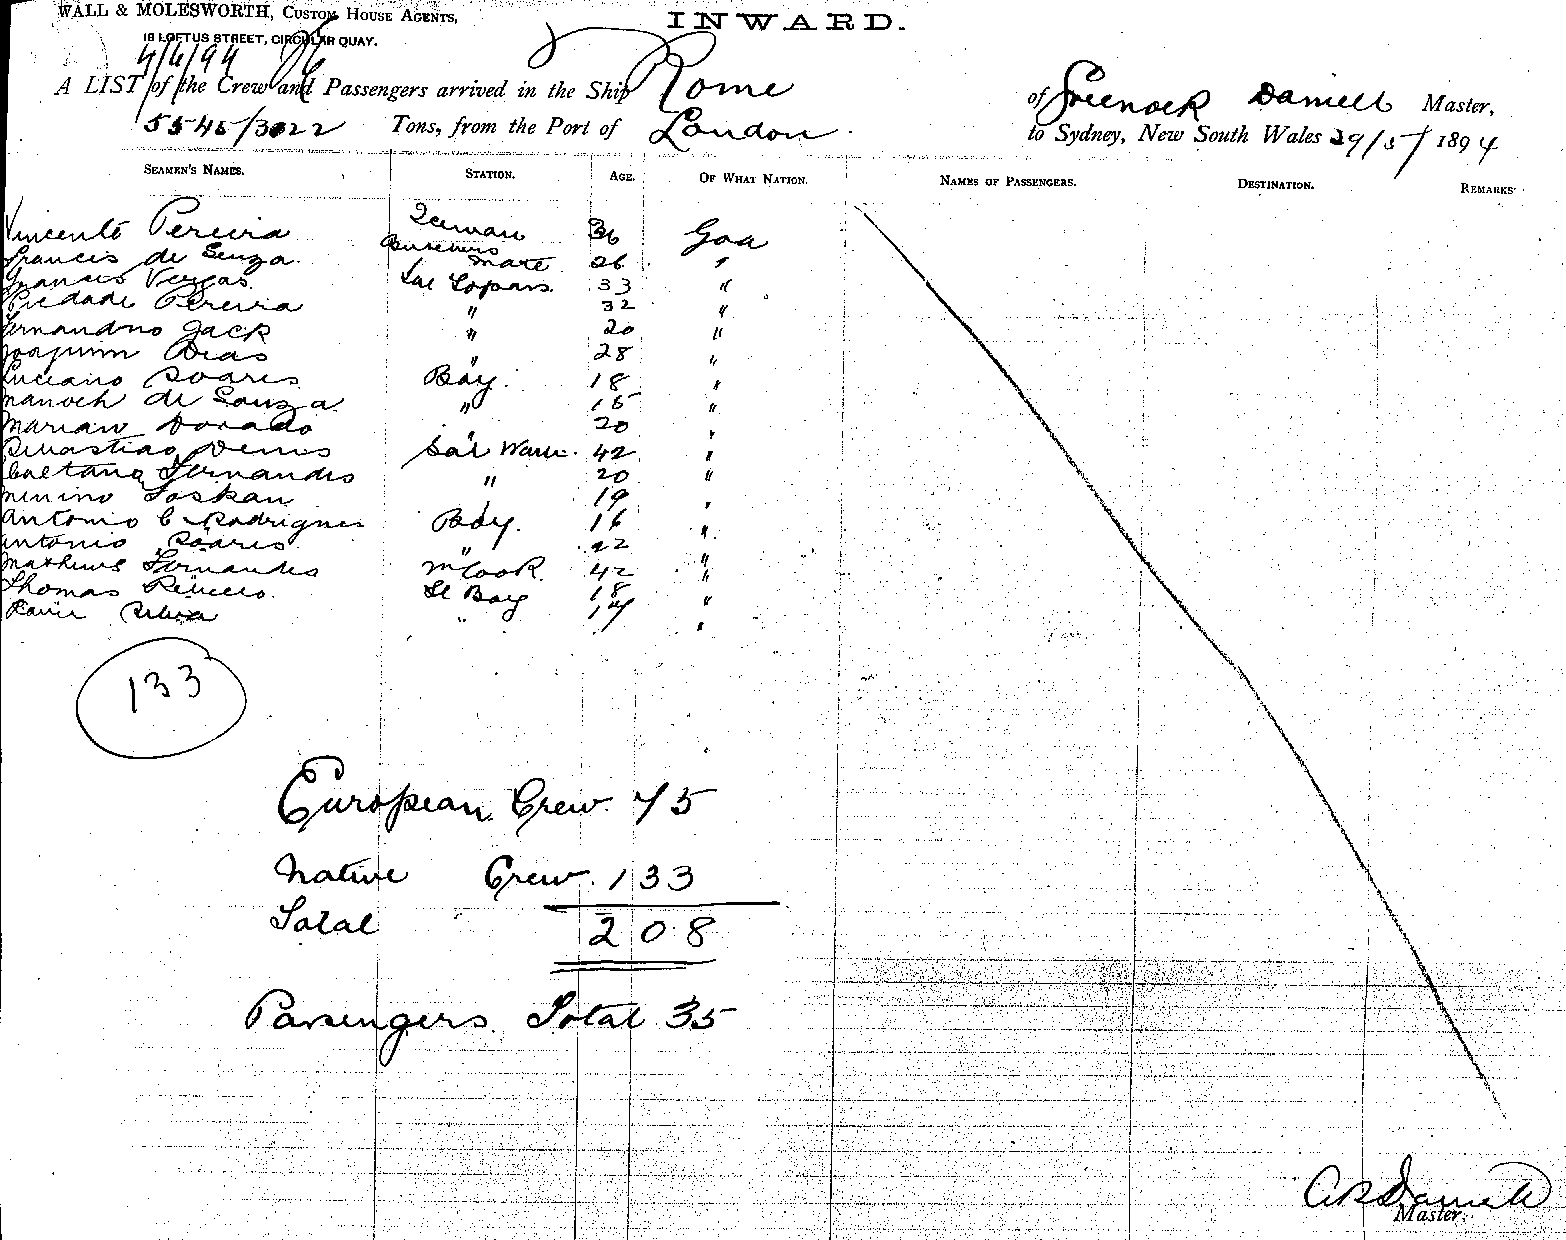 WALL & MOLESWORTH, CUSTOM HOUSE AGENTS,
18 LOFTUS STREET, CIRCULAR QUAY.
INWARD.
4/6/94
A LIST of the Crew and Passengers arrived in the Ship Rome of Greenock Daniell Master,
5545/3022 Tons, from the Port of London to Sydney, New South Wales 29/5/1894
SEAMEN'S NAMES. STATION. AGE. OF WHAT NATION. NAMES OF PASSENGERS. DESTINATION. REMARKS
Vincente Pereira 36 Goa
Francis de Souza Butchers mate 26 "
Francis Vergas 33 "
Piedade Pereira " 32 "
Fernandno Jack " 20 "
Joaquim Dias " 28 "
Luciano Soares Boy. 18 "
Manoch de Souza " 15 "
Marian Dorado " 20 "
Sebastiao Denis 42 "
Caetano Fernandes " 20 "
Minino " 19 "
Antonio C Rodrigues Boy. 16 "
Antonio Soares " 22 "
Mathews Fernandes Cook 42 "
Thomas Boy 18 "
Silva " 17 "
133
European Crew. 75
Native Crew. 133
Total 208
Passengers. Total 35
Daniell
Master.